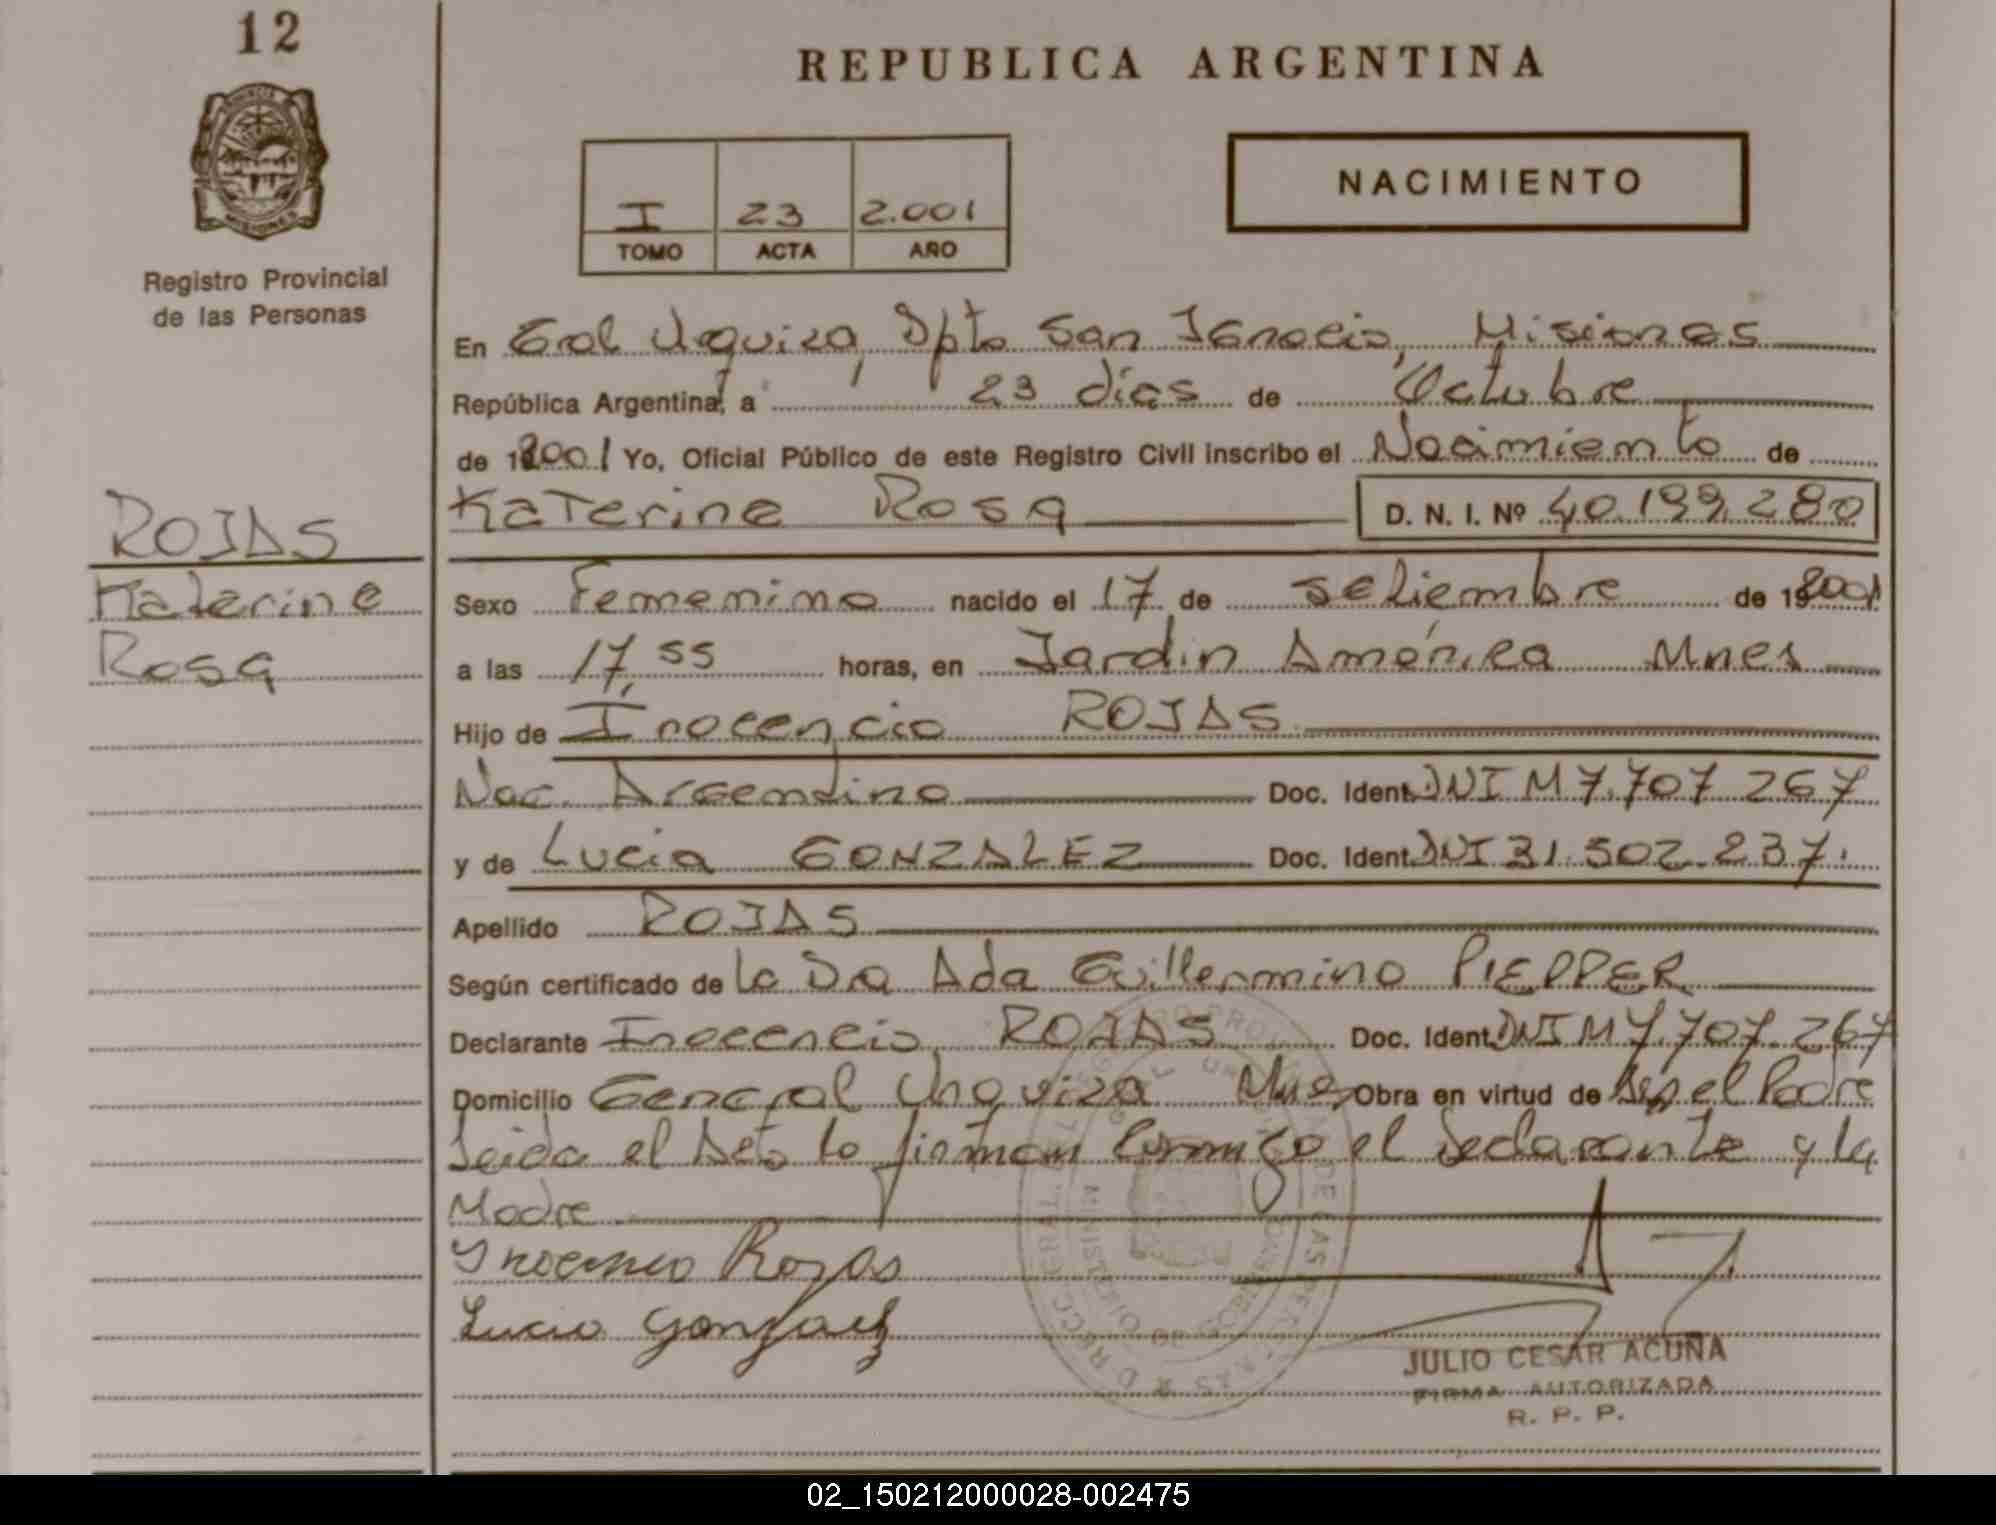 12
REPUBLICA ARGENTINA
NACIMIENTO
I 23 2.001
TOMO ACTA AÑO
Registro Provincial
de las Personas
En Gral Urquiza, Dpto San Ignacio, Misiones
República Argentina, a 23 días de Octubre
de 2001 Yo, Oficial Público de este Registro Civil inscribo el Nacimiento de
Katerine Rosa D. N. I. Nº 40.199.280
ROJAS
Katerine
Rosa
Sexo Femenino nacido el 17 de setiembre de 2001
a las 17,55 horas, en Jardin América Mnes
Hijo de Inocencio ROJAS
Nac. Argentino Doc. Ident. DNI M 7.707.267
y de Lucia GONZALEZ Doc. Ident. DNI 31.502.237.
Apellido ROJAS
Según certificado de la Dra Ada Guillermina PIEPPER
Declarante Inocencio ROJAS Doc. Ident. DNI M 7.707.267
Domicilio General Urquiza Mnes Obra en virtud de ser el Padre
Leida el Acta la firman conmigo el declarante y la
Madre
Inocencio Rojas
Lucia Gonzalez
JULIO CESAR ACUÑA
FIRMA AUTORIZADA
R. P. P.
02_150212000028-002475